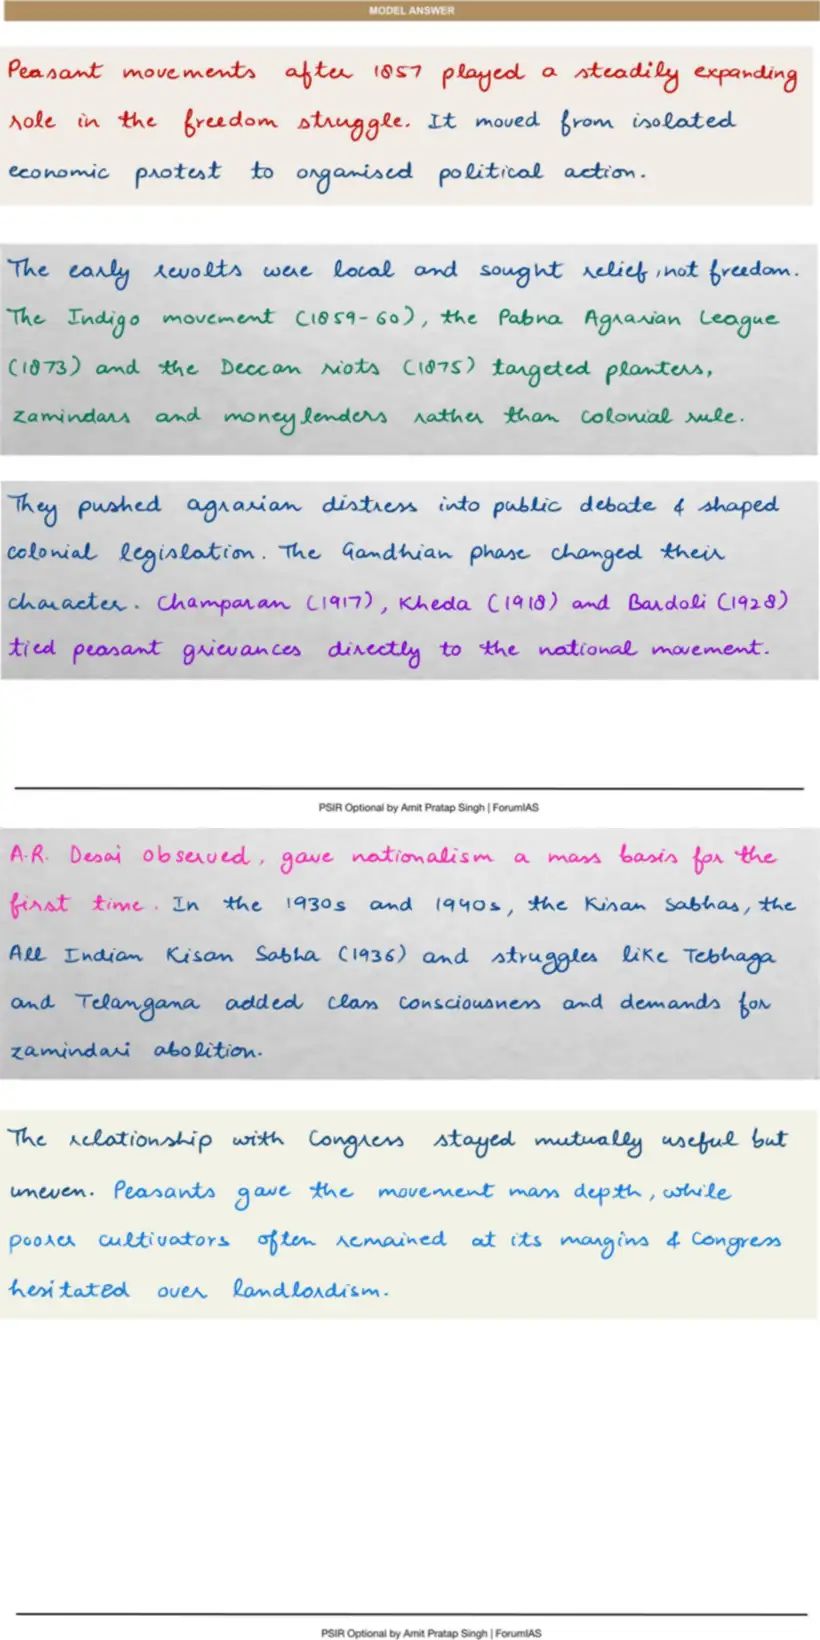 MODEL ANSWER
Peasant movements after 1857 played a steadily expanding
role in the freedom struggle. It moved from isolated
economic protest to organised political action.
The early revolts were local and sought relief, not freedom.
The Indigo movement (1859-60), the Pabna Agrarian League
(1873) and the Deccan riots (1875) targeted planters,
zamindars and moneylenders rather than colonial rule.
They pushed agrarian distress into public debate & shaped
colonial legislation. The Gandhian phase changed their
character. Champaran (1917), Kheda (1918) and Bardoli (1928)
tied peasant grievances directly to the national movement.
PSIR Optional by Amit Pratap Singh | ForumIAS
A.R. Desai observed, gave nationalism a mass basis for the
first time. In the 1930s and 1940s, the Kisan Sabhas, the
All Indian Kisan Sabha (1936) and struggles like Tebhaga
and Telangana added class consciousness and demands for
zamindari abolition.
The relationship with Congress stayed mutually useful but
uneven. Peasants gave the movement mass depth, while
poorer cultivators often remained at its margins & Congress
hesitated over landlordism.
PSIR Optional by Amit Pratap Singh | ForumIAS